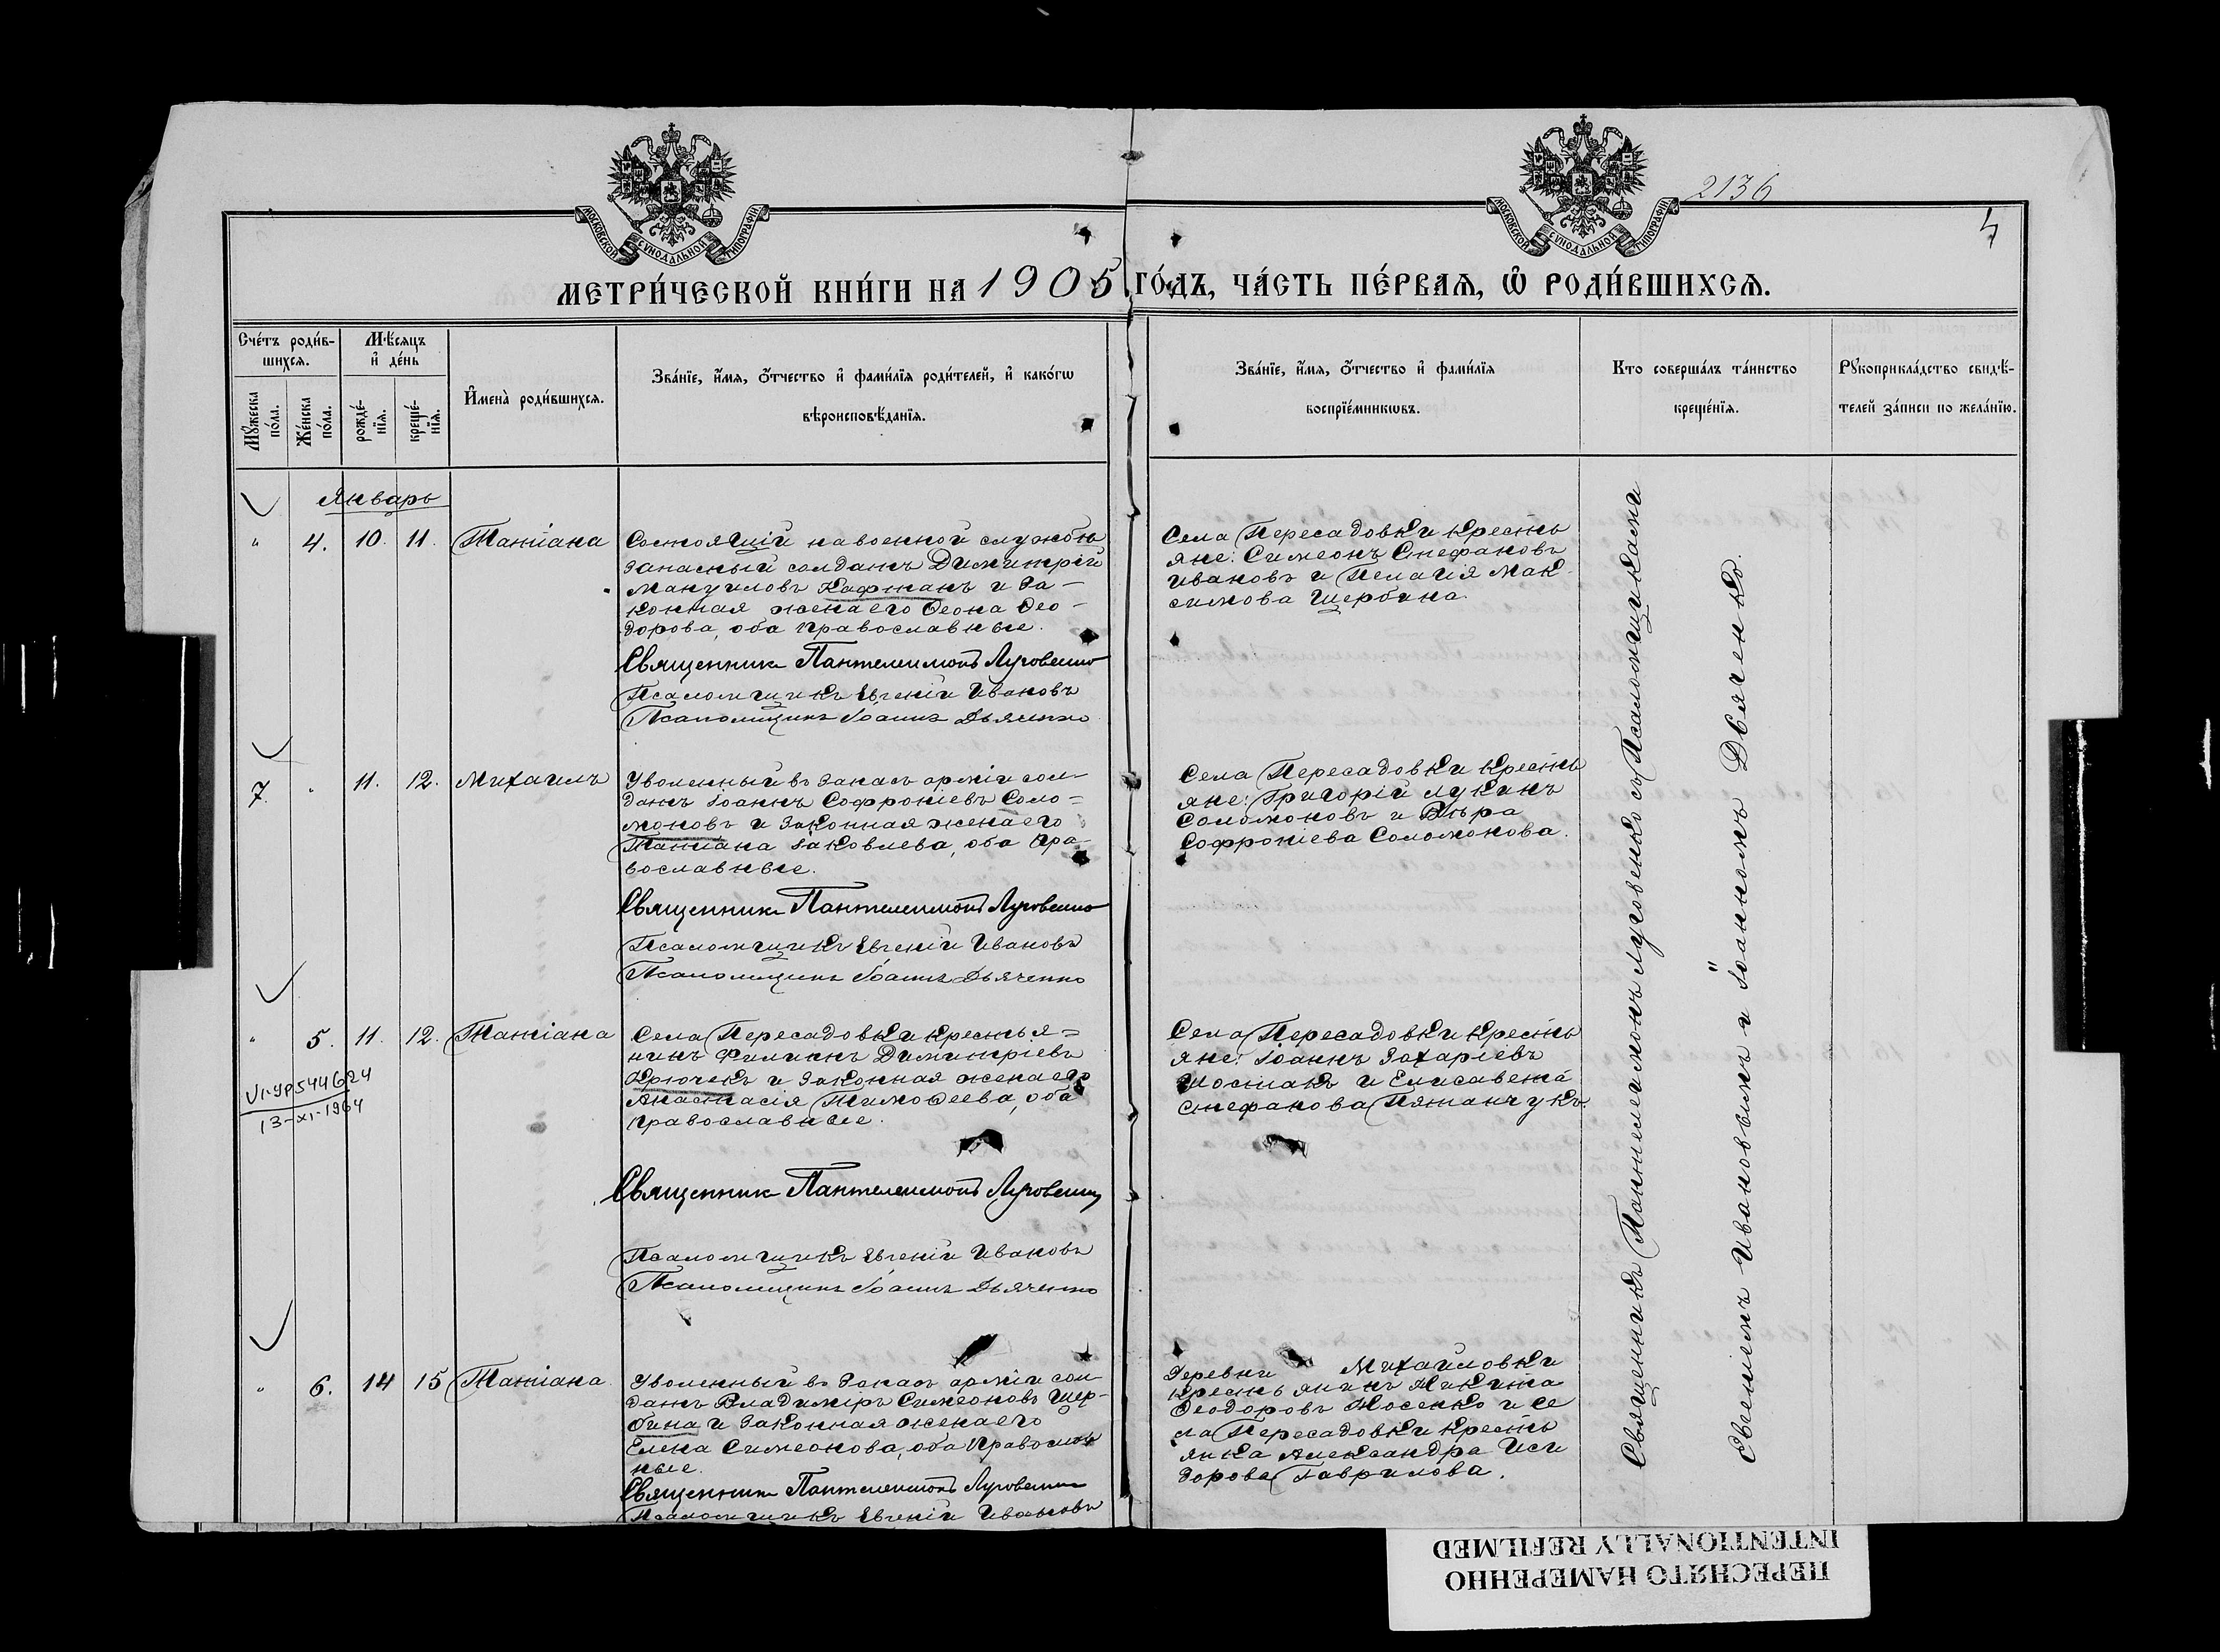 МОСКОВСКОЙ СѴНОДАЛЬНОЙ ТИПОГРАФІИ
МОСКОВСКОЙ СѴНОДАЛЬНОЙ ТИПОГРАФІИ
2136
4
МЕТРИ́ЧЕСКОЙ КНИ́ГИ НА 1905 ГО́ДЪ, ЧА́СТЬ ПЕ́РВАѦ, Ѡ҆ РОДИ́ВШИХСѦ.
Сче́тъ роди́в-
шихсѧ.
Мѣ́сѧцъ
и҆ де́нь
Мꙋ́жеска
по́ла.
Же́нска
по́ла.
рожде́-
нїѧ.
креще́-
нїѧ.
И҆мена̀ роди́вшихсѧ.
Зва́нїе, и҆́мѧ, ѻ҆́тчество и҆ фами́лїѧ роди́телей, и҆ како́гѡ
вѣроисповѣ́данїѧ.
Зва́нїе, и҆́мѧ, ѻ҆́тчество и҆ фами́лїѧ
воспрїе́мникѡвъ.
Кто соверша́лъ та́инство
креще́нїѧ.
Рꙋкоприкла́дство свидѣ́-
телей за́писи по жела́нїю.
Январь
" 4. 10. 11. Татіана
Состоящій на военной службѣ
запасный солдатъ Димитрій
Мануиловъ Кафтанъ и за-
конная жена его Ѳеона Ѳео-
дорова, оба православные.
Священникъ Пантелеимонъ Луговенко
Псаломщикъ Евгеній Ивановъ
Псаломщикъ Іоаннъ Дьяченко
Села Пересадовки кресть
яне: Симеонъ Стефановъ
Ивановъ и Пелагія Мак
симова Щербина.
7. " 11. 12. Михаилъ
Уволенный въ запасъ арміи сол-
датъ Іоаннъ Софроніевъ Соло=
моновъ и законная жена его
Татіана Іаковлева, оба пра-
вославные.
Священникъ Пантелеимонъ Луговенко
Псаломщикъ Евгеній Ивановъ
Псаломщикъ Іоаннъ Дьяченко
Села Пересадовки кресть
яне: Григорій Лукинъ
Соломоновъ и Вѣра
Софроніева Соломонова.
" 5. 11. 12. Татіана
VI-УР544624
13-XI-1964
Села Пересадовки крестья=
нинъ Филиппъ Димитріевъ
Крючекъ и законная жена его
Анастасія Тимоѳеева, оба
православные.
Священникъ Пантелеимонъ Луговенко
Псаломщикъ Евгеній Ивановъ
Псаломщикъ Іоаннъ Дьяченко
Села Пересадовки кресть
яне: Іоаннъ Захаріевъ
Шостакъ и Елисавета
Стефанова Пятанчукъ.
" 6. 14 15 Татіана
Уволенный въ запасъ арміи сол-
датъ Владиміръ Симеоновъ Щер-
бина и законная жена его
Елена Симеонова, оба православ
ные.
Священникъ Пантелеимонъ Луговенко
Псаломщикъ Евгеній Ивановъ
Деревни Михайловки
крестьянинъ Никита
Ѳеодоровъ Носенко и се
ла Пересадовки кресть
янка Александра Иси
дорова Гаврилова.
Священникъ Пантелеимонъ Луговенко съ Псаломщиками
Евгеніемъ Ивановымъ и Іоанномъ Дьяченко.
ПЕРЕСНЯТО НАМЕРЕННО
INTENTIONALLY REFILMED